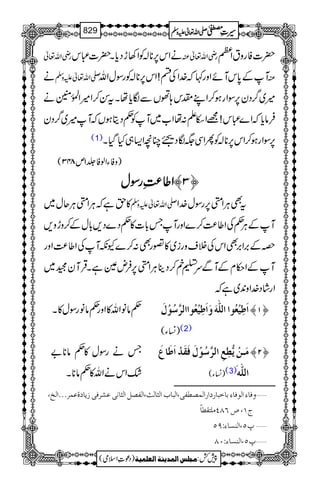 سیرتِ مصطفی صلی اللہ تعالیٰ علیہ وسلم 829
حضرت فاروق اعظم رضی اللہ تعالیٰ عنہ نے اس پرنالہ کو اکھاڑ دیا۔ حضرت عباس رضی اللہ تعالیٰ
عنہ آپ کے پاس آئے اور کہا کہ خدا کی قسم! اس پرنالہ کو رسول اللہ صلی اللہ تعالیٰ علیہ وسلم نے
میری گردن پر سوار ہو کر اپنے مقدس ہاتھوں سے لگایا تھا۔ یہ سن کر امیر المؤمنین نے
فرمایا کہ اے عباس! مجھے اس کا علم نہ تھا اب میں آپ کو حکم دیتا ہوں کہ آپ میری گردن
پر سوار ہو کر اس پرنالہ کو پھر اسی جگہ لگا دیجئے چنانچہ ایسا ہی کیا گیا۔ (1)
(وفاء الوفاء جلد۱ ص۳۴۸)
﴿۳﴾ اطاعتِ رسول
یہ بھی ہر امتی پر رسولِ خدا صلی اللہ تعالیٰ علیہ وسلم کا حق ہے کہ ہر امتی ہر حال میں
آپ کے ہر حکم کی اطاعت کرے اور آپ جس بات کا حکم دے دیں بال کے کروڑویں
حصہ کے برابر بھی اس کی خلاف ورزی کا تصور بھی نہ کرے کیونکہ آپ کی اطاعت اور
آپ کے احکام کے آگے سرِ تسلیم خم کر دینا ہر امتی پر فرضِ عین ہے۔ قرآن مجید میں
ارشادِ خداوندی ہے کہ
﴿۱﴾ اَطِیْعُوا اللّٰهَ وَاَطِیْعُوا الرَّسُوْلَ
حکم مانو اللہ کا اور حکم مانو رسول کا۔
(2) (نساء)
﴿۲﴾ مَنْ یُّطِعِ الرَّسُوْلَ فَقَدْ اَطَاعَ
اللّٰهَ (3) (نساء)
جس نے رسول کا حکم مانا بے
شک اس نے اللہ کا حکم مانا۔
وفاء الوفاء باخبار دار المصطفی، الباب الثالث، الفصل الثانی عشر فی زیادۃ عمر...الخ،
ج۱، ص۴۸۶ ملتقطاً
پ۵، النساء: ۵۹
پ۵، النساء: ۸۰
پیش کش: مجلس المدینۃ العلمیۃ (دعوتِ اسلامی)